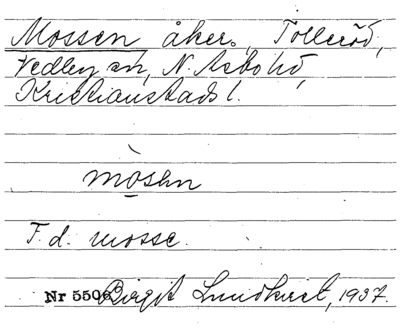 Mossen åker, Tolleröd,
Vedby sn, N. Åsbo hd,
Kristianstads l.
mòsən
F. d. mosse.
Nr 5506 Birgit Lundkvist, 1937.